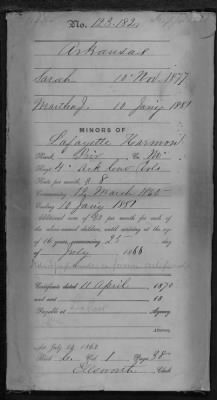 No. 123.182
Arkansas
Sarah 10 Nov. 1877
Martha J. 10 Jan'y 1881
MINORS OF
Lafayette Harmon
Rank, Priv Co.
Regt. 4" Ark Cav Vols
Rate per month, $ 8
Commencing 12 March 1865
Ending 10 Jan'y 1881
Additional sum of $2 per month for each of
the above-named children, until arriving at the age
of 16 years, commencing 25 day
of July 1866
Certificate dated 11 April 1870
and sent
Payable at
Agency
Act July 14 1862
Book C Vol 1 Page 38
Clerk